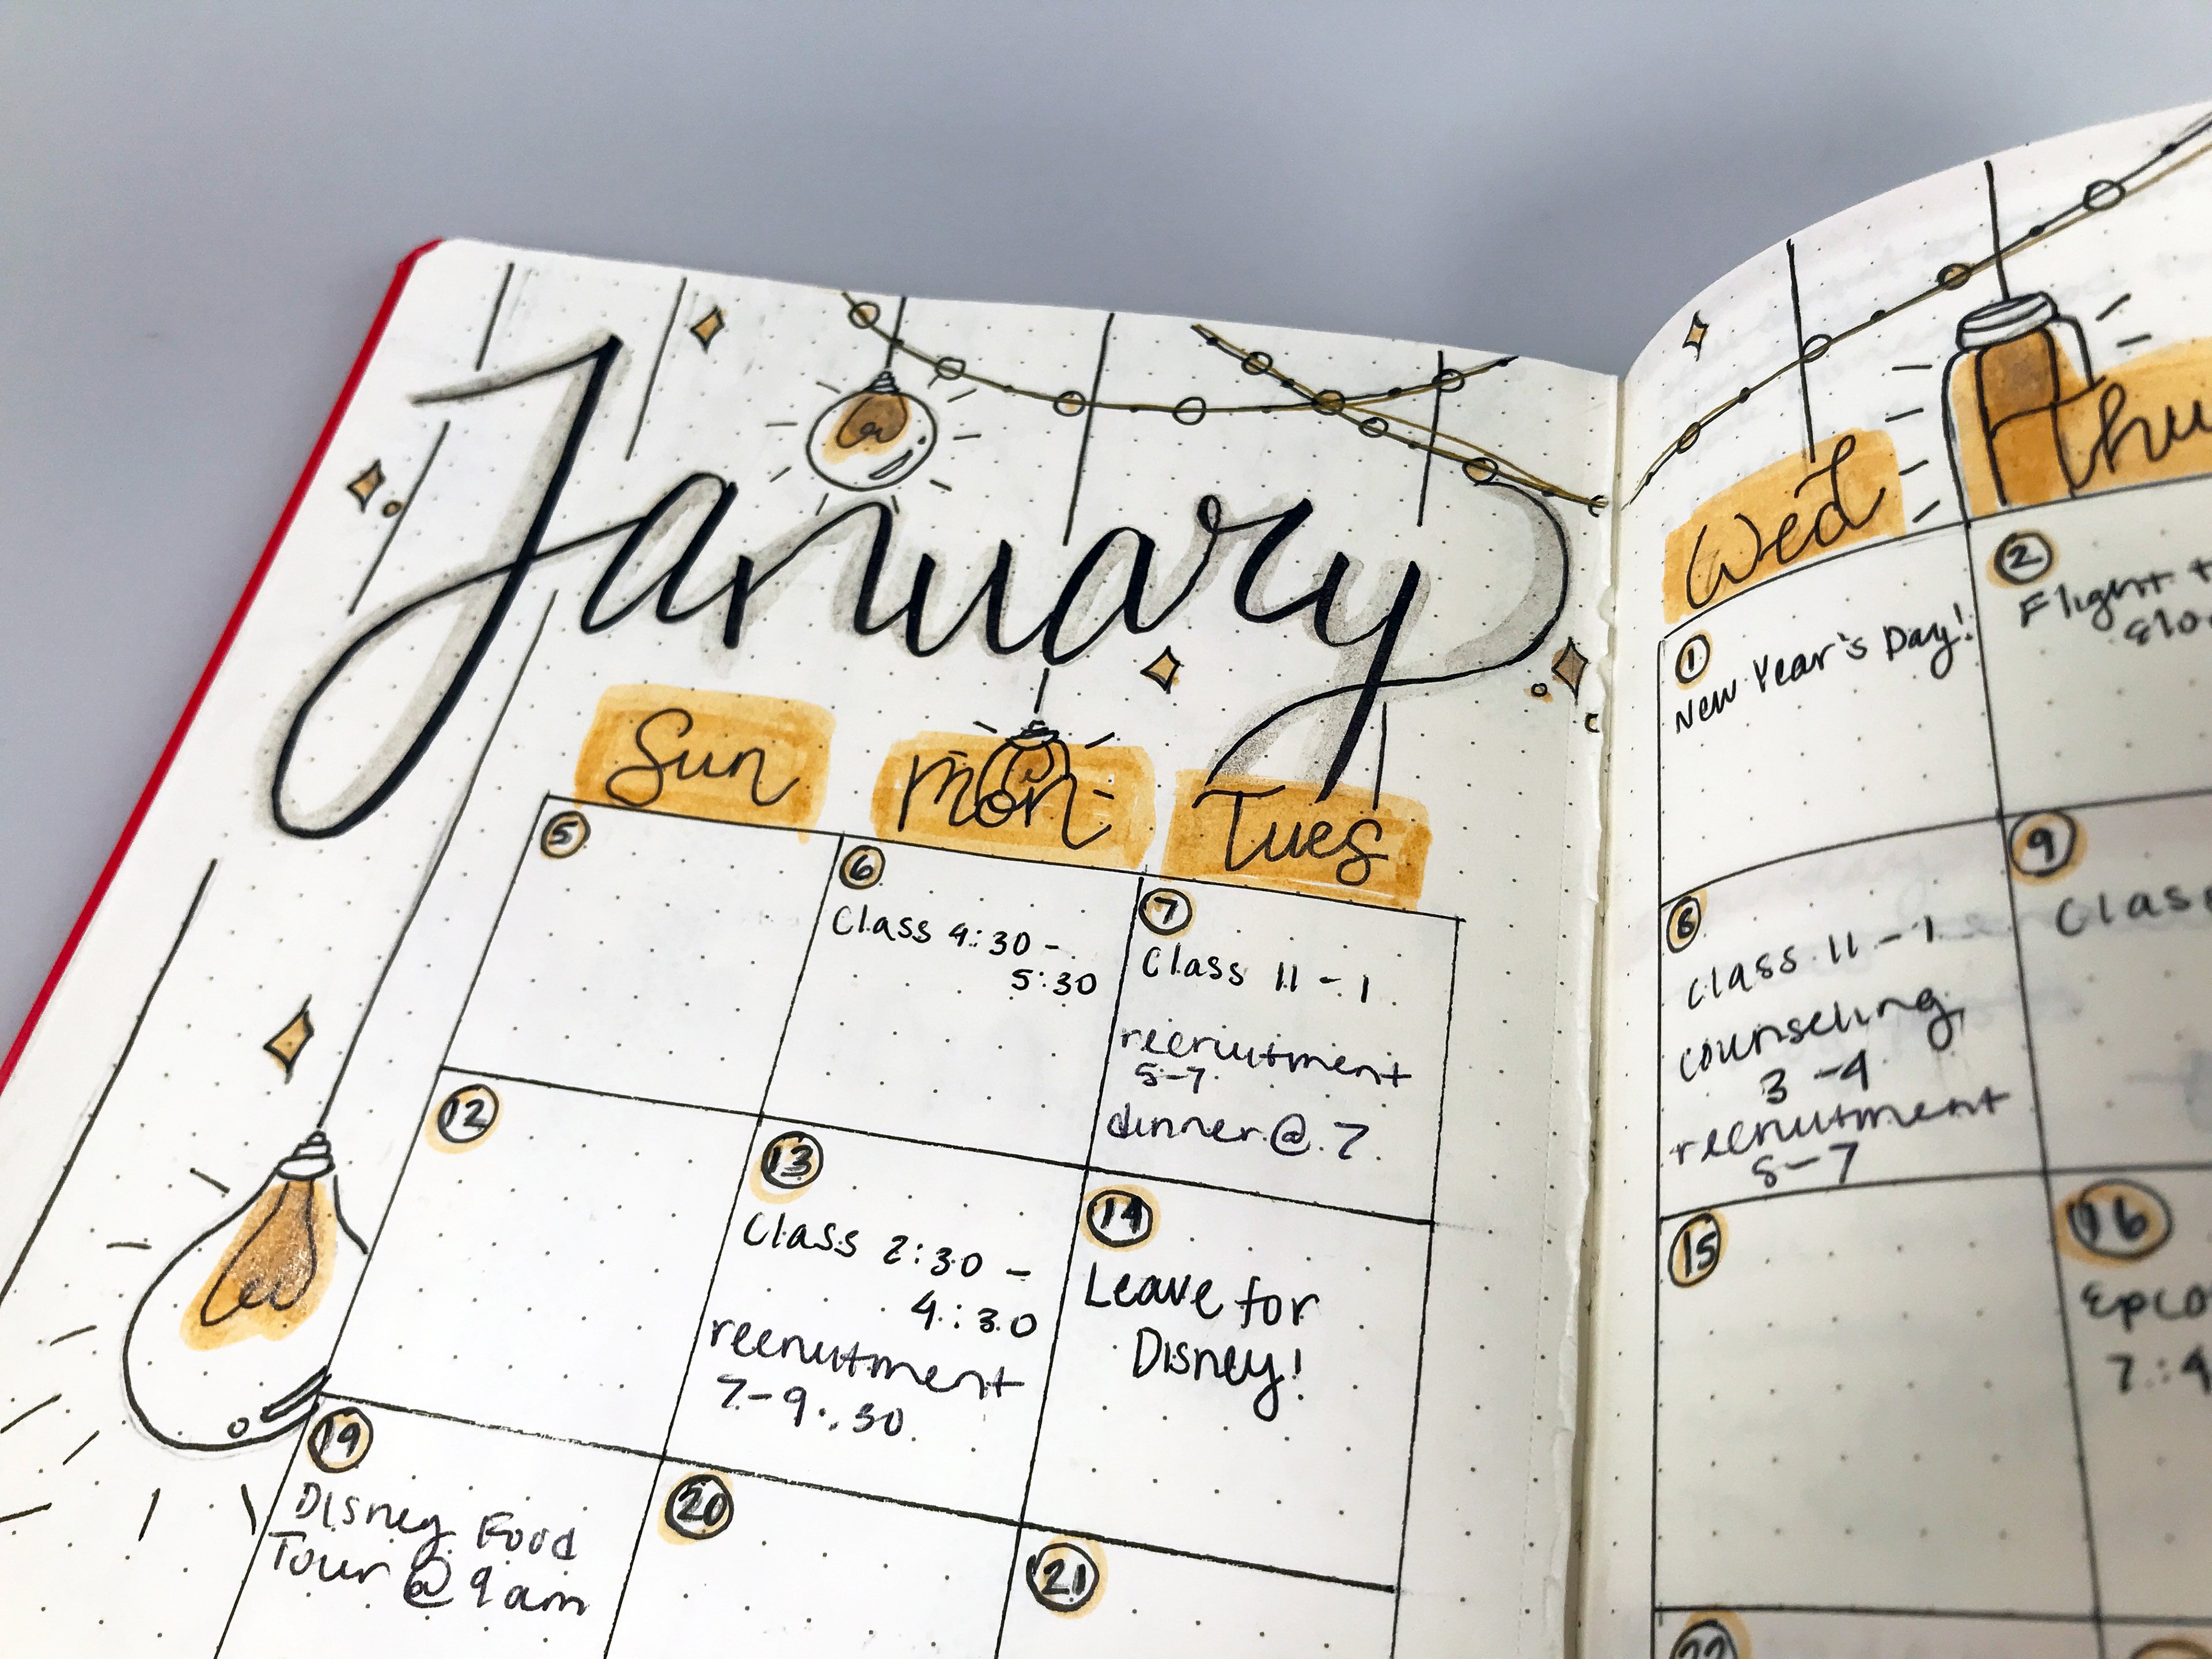 January
Sun Mon Tues
5
6
Class 4:30 -
5:30
7
Class 11 - 1
recruitment
5-7
dinner @ 7
12
13
Class 2:30 -
4:30
recruitment
7-9:30
14
Leave for
Disney!
19
Disney Food
Tour @ 9am
20
21
Wed Thu
1
New Year's Day!
2
Flight
8
Class 11 - 1
counseling
3-4
recruitment
5-7
9
Class
15
16
Epco
7:4
22